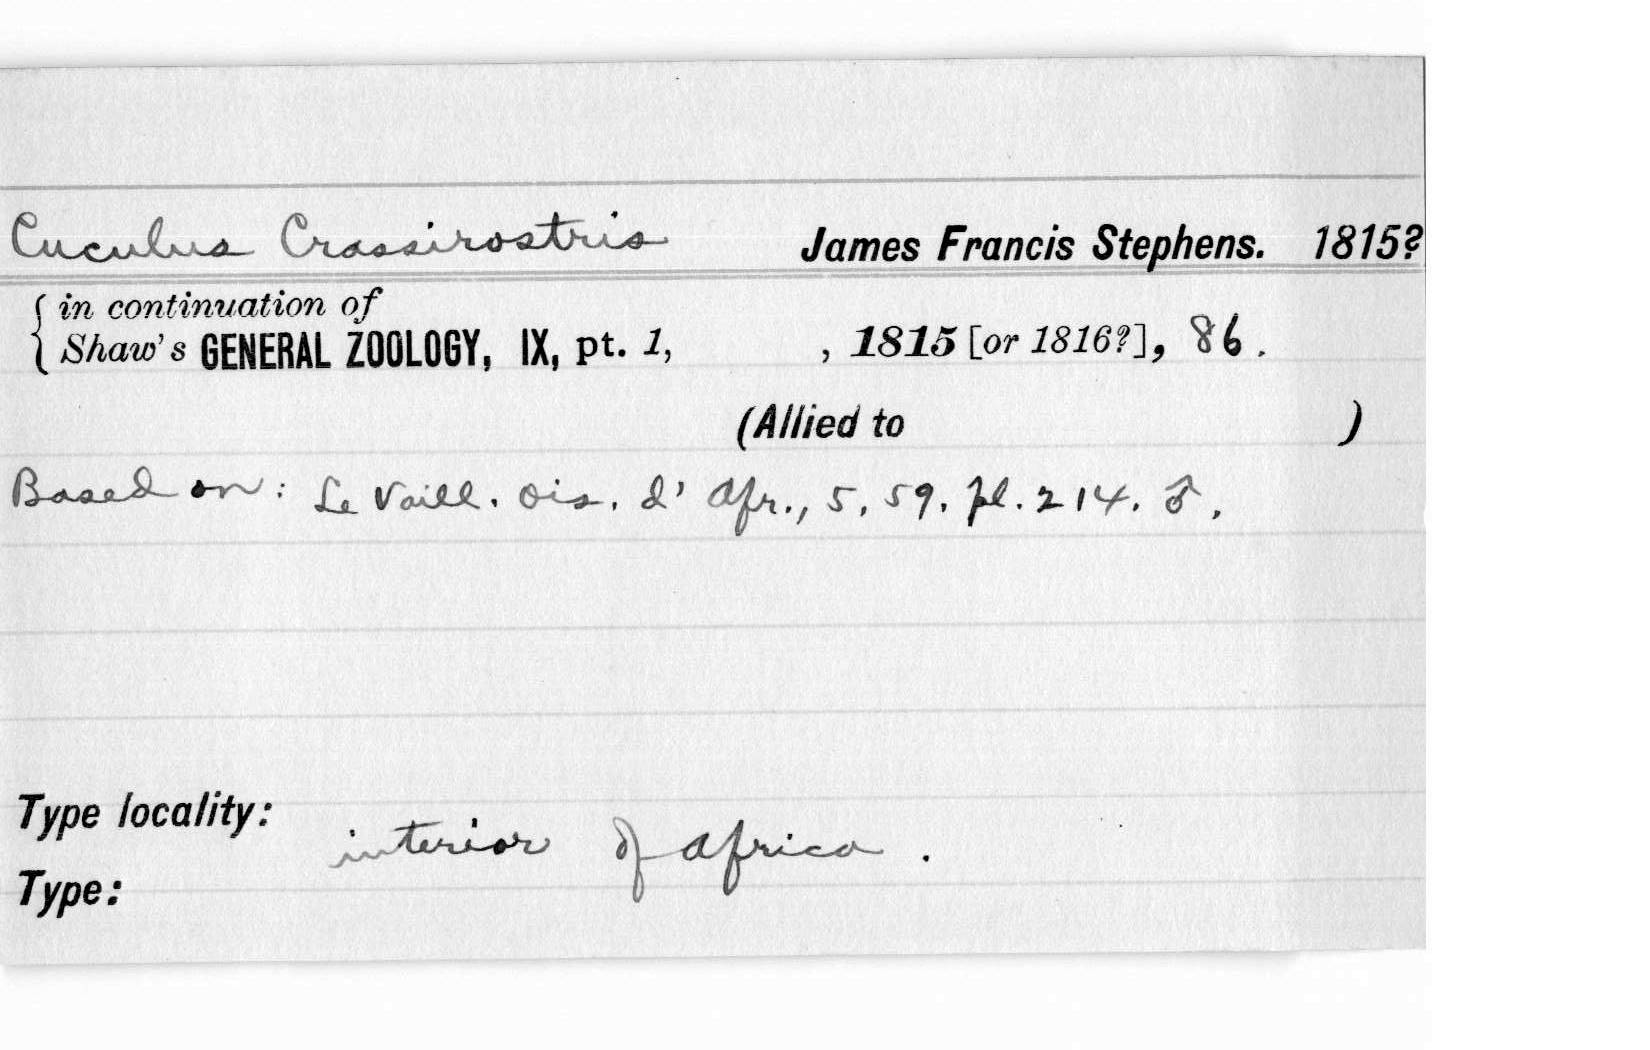 Cuculus Crassirostris James Francis Stephens. 1815?
{ in continuation of
Shaw's GENERAL ZOOLOGY, IX, pt. 1, , 1815 [or 1816?], 86.
(Allied to )
Based on: Le Vaill. Ois. d' Afr., 5, 59. pl. 214. ♂.
Type locality: interior of Africa.
Type: